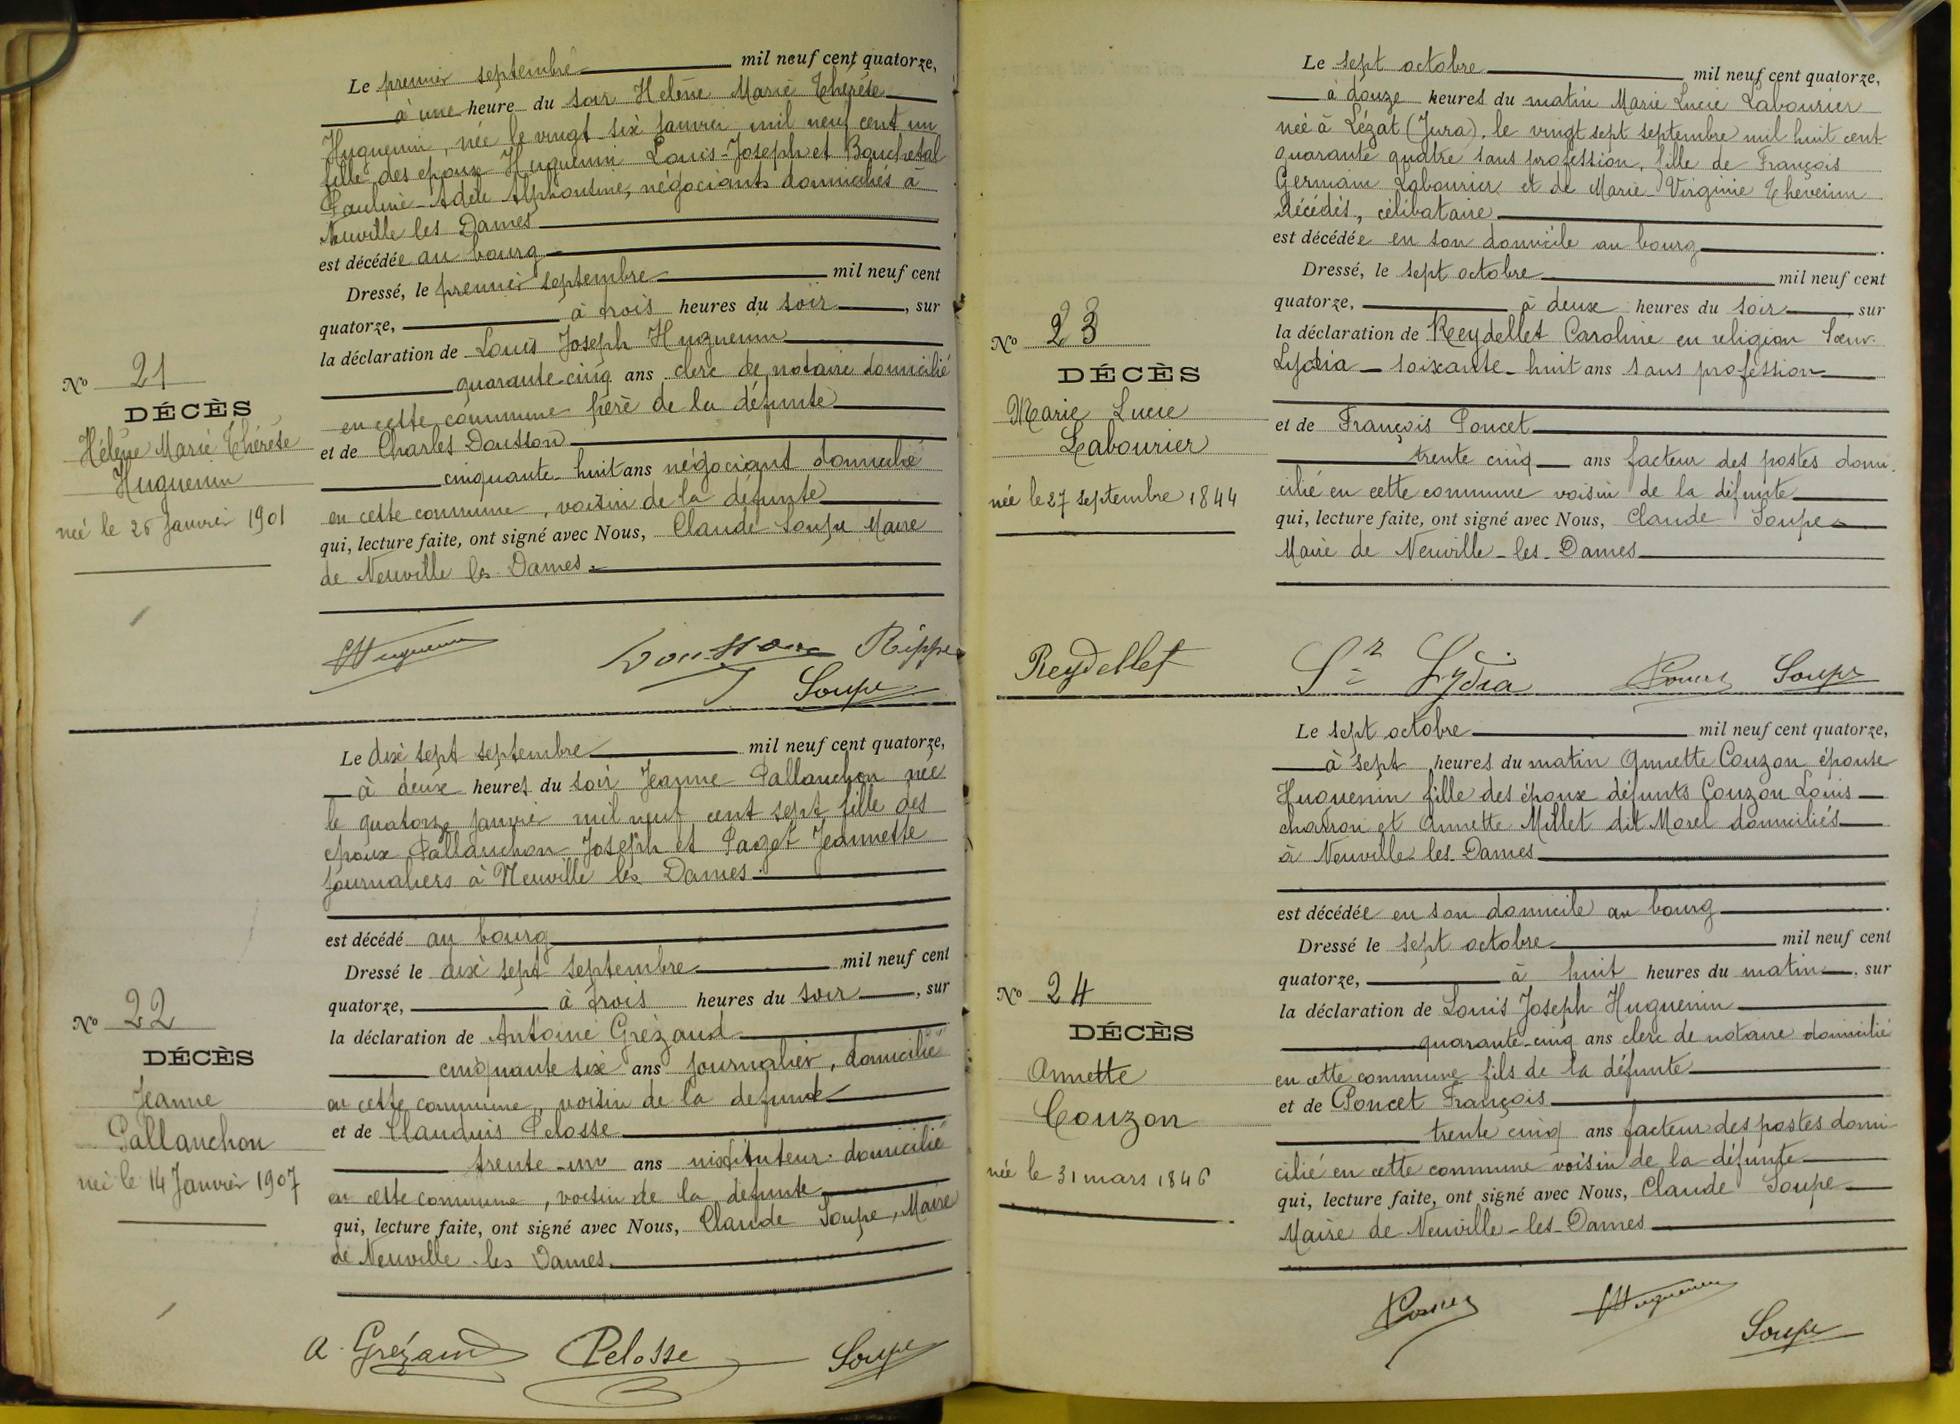 Le premier septembre mil neuf cent quatorze,
à une heure du soir Hélène Marie Thérèse
Huguenin, née le vingt six janvier mil neuf cent un
fille des époux Huguenin Louis-Joseph et Bouchetal
Pauline-Adèle Alphonsine, négociants domiciliés à
Neuville les Dames
est décédée au bourg
Dressé, le premier septembre mil neuf cent
quatorze, à trois heures du soir, sur
la déclaration de Louis Joseph Huguenin
quarante cinq ans clerc de notaire domicilié
en cette commune père de la défunte
et de Charles Dousson
cinquante-huit ans négociant domicilié
en cette commune, voisin de la défunte
qui, lecture faite, ont signé avec Nous, Claude Soupe Maire
de Neuville les Dames.
No 21
DÉCÈS
Hélène Marie Thérèse
Huguenin
née le 26 Janvier 1901
Huguenin Dousson Rippe
Soupe
Le dix sept septembre mil neuf cent quatorze,
à deux heures du soir Jeanne Pallanchon née
le quatorze janvier mil neuf cent sept fille des
époux Pallanchon Joseph et Paget Jeannette
journaliers à Neuville les Dames.
est décédé au bourg
Dressé le dix sept septembre mil neuf cent
quatorze, à trois heures du soir, sur
la déclaration de Antoine Grézaud
cinquante six ans journalier, domicilié
en cette commune, voisin de la defunte
et de Claudius Pelosse
trente-un ans instituteur domicilié
en cette commune, voisin de la défunte
qui, lecture faite, ont signé avec Nous, Claude Soupe, Maire
de Neuville les Dames.
No 22
DÉCÈS
Jeanne
Pallanchon
née le 14 Janvier 1907
A. Grézaud Pelosse Soupe
Le sept octobre mil neuf cent quatorze,
à douze heures du matin Marie Lucie Labourier
née à Lézat (Jura), le vingt sept septembre mil huit cent
quarante quatre sans profession, fille de François
Germain Labourier et de Marie Virginie Thevenin
décédés, célibataire
est décédée en son domicile au bourg.
Dressé, le sept octobre mil neuf cent
quatorze, à deux heures du soir sur
la déclaration de Reydellet Caroline en religion Sœur
Lydia - soixante-huit ans sans profession
et de François Poncet
trente cinq ans facteur des postes domi-
cilié en cette commune voisin de la défunte
qui, lecture faite, ont signé avec Nous, Claude Soupe
Maire de Neuville-les-Dames
No 23
DÉCÈS
Marie Lucie
Labourier
née le 27 septembre 1844
Reydellet Sr Lydia Poncet Soupe
Le sept octobre mil neuf cent quatorze,
à sept heures du matin Annette Couzon épouse
Huguenin fille des époux défunts Couzon Louis
charron et Annette Millet dit Morel domiciliés
à Neuville les Dames
est décédée en son domicile au bourg.
Dressé le sept octobre mil neuf cent
quatorze, à huit heures du matin, sur
la déclaration de Louis Joseph Huguenin
quarante-cinq ans clerc de notaire domicilié
en cette commune fils de la défunte
et de Poncet François
trente cinq ans facteur des postes domi-
cilié en cette commune voisin de la défunte
qui, lecture faite, ont signé avec Nous, Claude Soupe
Maire de Neuville-les-Dames
No 24
DÉCÈS
Annette
Couzon
née le 31 mars 1846
Poncet Huguenin
Soupe